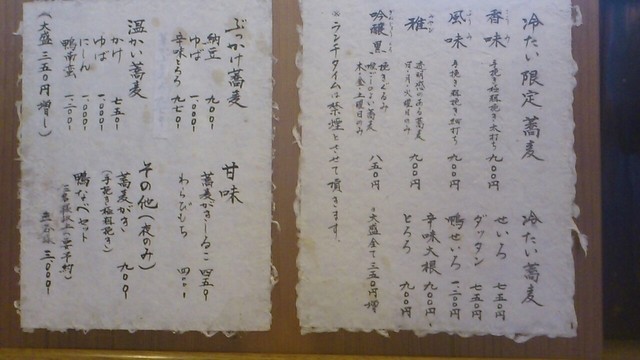 冷たい限定蕎麦
香味 手挽き極粗挽き太打ち 九〇〇円
風味 手挽き粗挽き細打ち 九〇〇円
雅 透明感のある蕎麦 九〇〇円
日・月・火曜日のみ
吟醸黒 挽きぐるみ
喉ごしのよい蕎麦 八五〇円
木・金・土曜日のみ
※ランチタイムは禁煙とさせて頂きます。
冷たい蕎麦
せいろ 七五〇円
ダッタン 七五〇円
鴨せいろ 一二〇〇円
辛味大根 九〇〇円
とろろ 九〇〇円
○大盛全て三五〇円増
ぶっかけ蕎麦
納豆 九〇〇
ゆば 一〇〇〇
辛味とろろ 九七〇
温かい蕎麦
かけ 七五〇
ゆば 一〇〇〇
にしん 一〇〇〇
鴨南蛮 一二〇〇
(大盛 三五〇円増し)
甘味
蕎麦がきしるこ 四五〇
わらびもち 四〇〇
その他(夜のみ)
蕎麦がき 九〇〇
(手挽き極粗挽き)
鴨なべセット
(要予約)
三〇〇〇